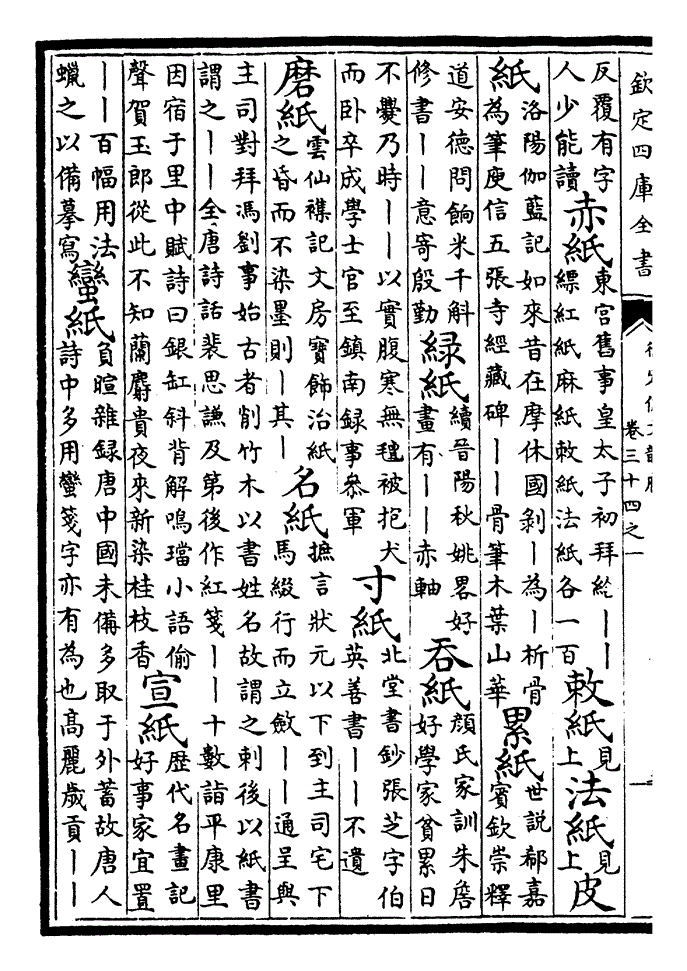 欽定四庫全書
卷三十四之一
反覆有字
人少能讀
赤紙
東宫舊事皇太子初拜給——
縹紅紙麻紙敕紙法紙各一百
敕紙
見上
法紙
見上
皮
紙
洛陽伽藍記如來昔在摩休國剝—為—析骨
為筆庾信五張寺經藏碑——骨筆木葉山華
累紙
世說郗嘉
賓欽崇釋
道安德問餉米千斛
修書——意寄殷勤
緑紙
續晉陽秋姚畧好
畫有——赤軸
吞紙
顔氏家訓朱詹
好學家貧累日
不爨乃時——以實腹寒無氊被抱犬
而卧卒成學士官至鎮南録事參軍
寸紙
北堂書鈔張芝字伯
英善書——不遺
磨紙
雲仙襍記文房寶飾治紙
之昏而不染墨則—其—
名紙
摭言狀元以下到主司宅下
馬綴行而立斂——通呈與
主司對拜馮劉事始古者削竹木以書姓名故謂之刺後以紙書
謂之——全唐詩話裴思謙及第後作紅箋——十數詣平康里
因宿于里中賦詩曰銀缸斜背解鳴璫小語偷
聲賀玉郎從此不知蘭麝貴夜來新染桂枝香
宣紙
歴代名畫記
好事家宜置
——百幅用法
蠟之以備摹寫
蠻紙
負暄雜録唐中國未備多取于外蓄故唐人
詩中多用蠻箋字亦有為也高麗歲貢——